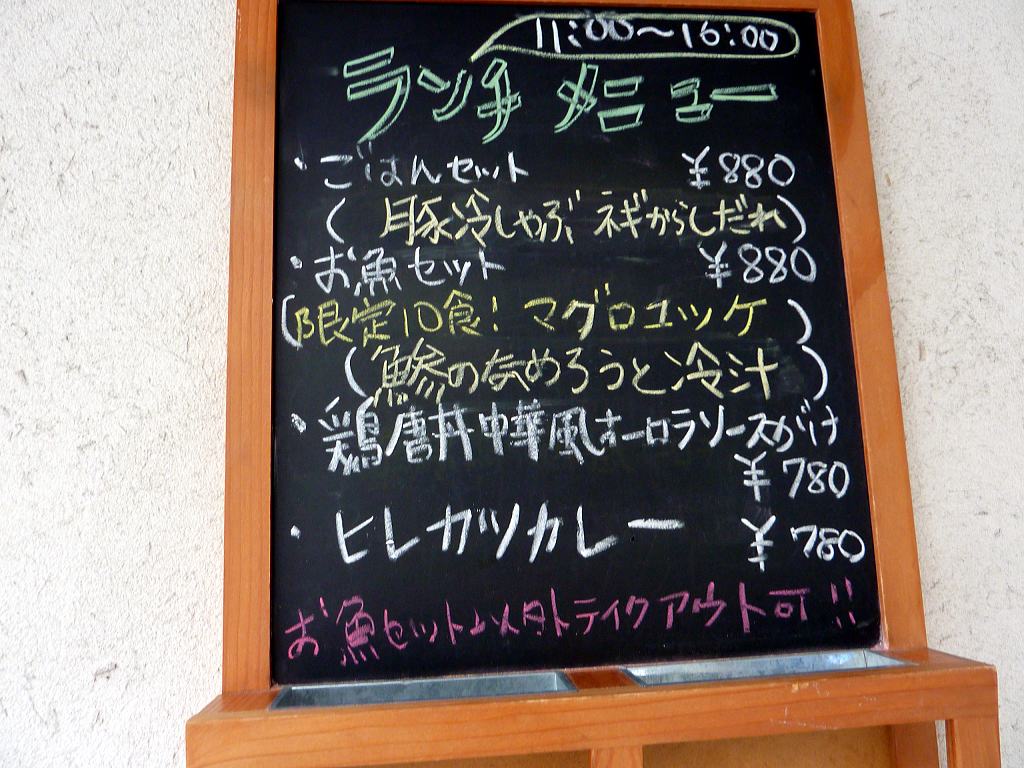 11:00～16:00
ランチ メニュー
・ごはんセット ￥880
( 豚冷しゃぶ ネギからしだれ)
・お魚セット ￥880
(限定10食! マグロユッケ )
(鯵のなめろうと冷汁 )
・鶏唐丼中華風オーロラソースがけ
￥780
・ヒレカツカレー ￥780
お魚セット以外テイクアウト可!!